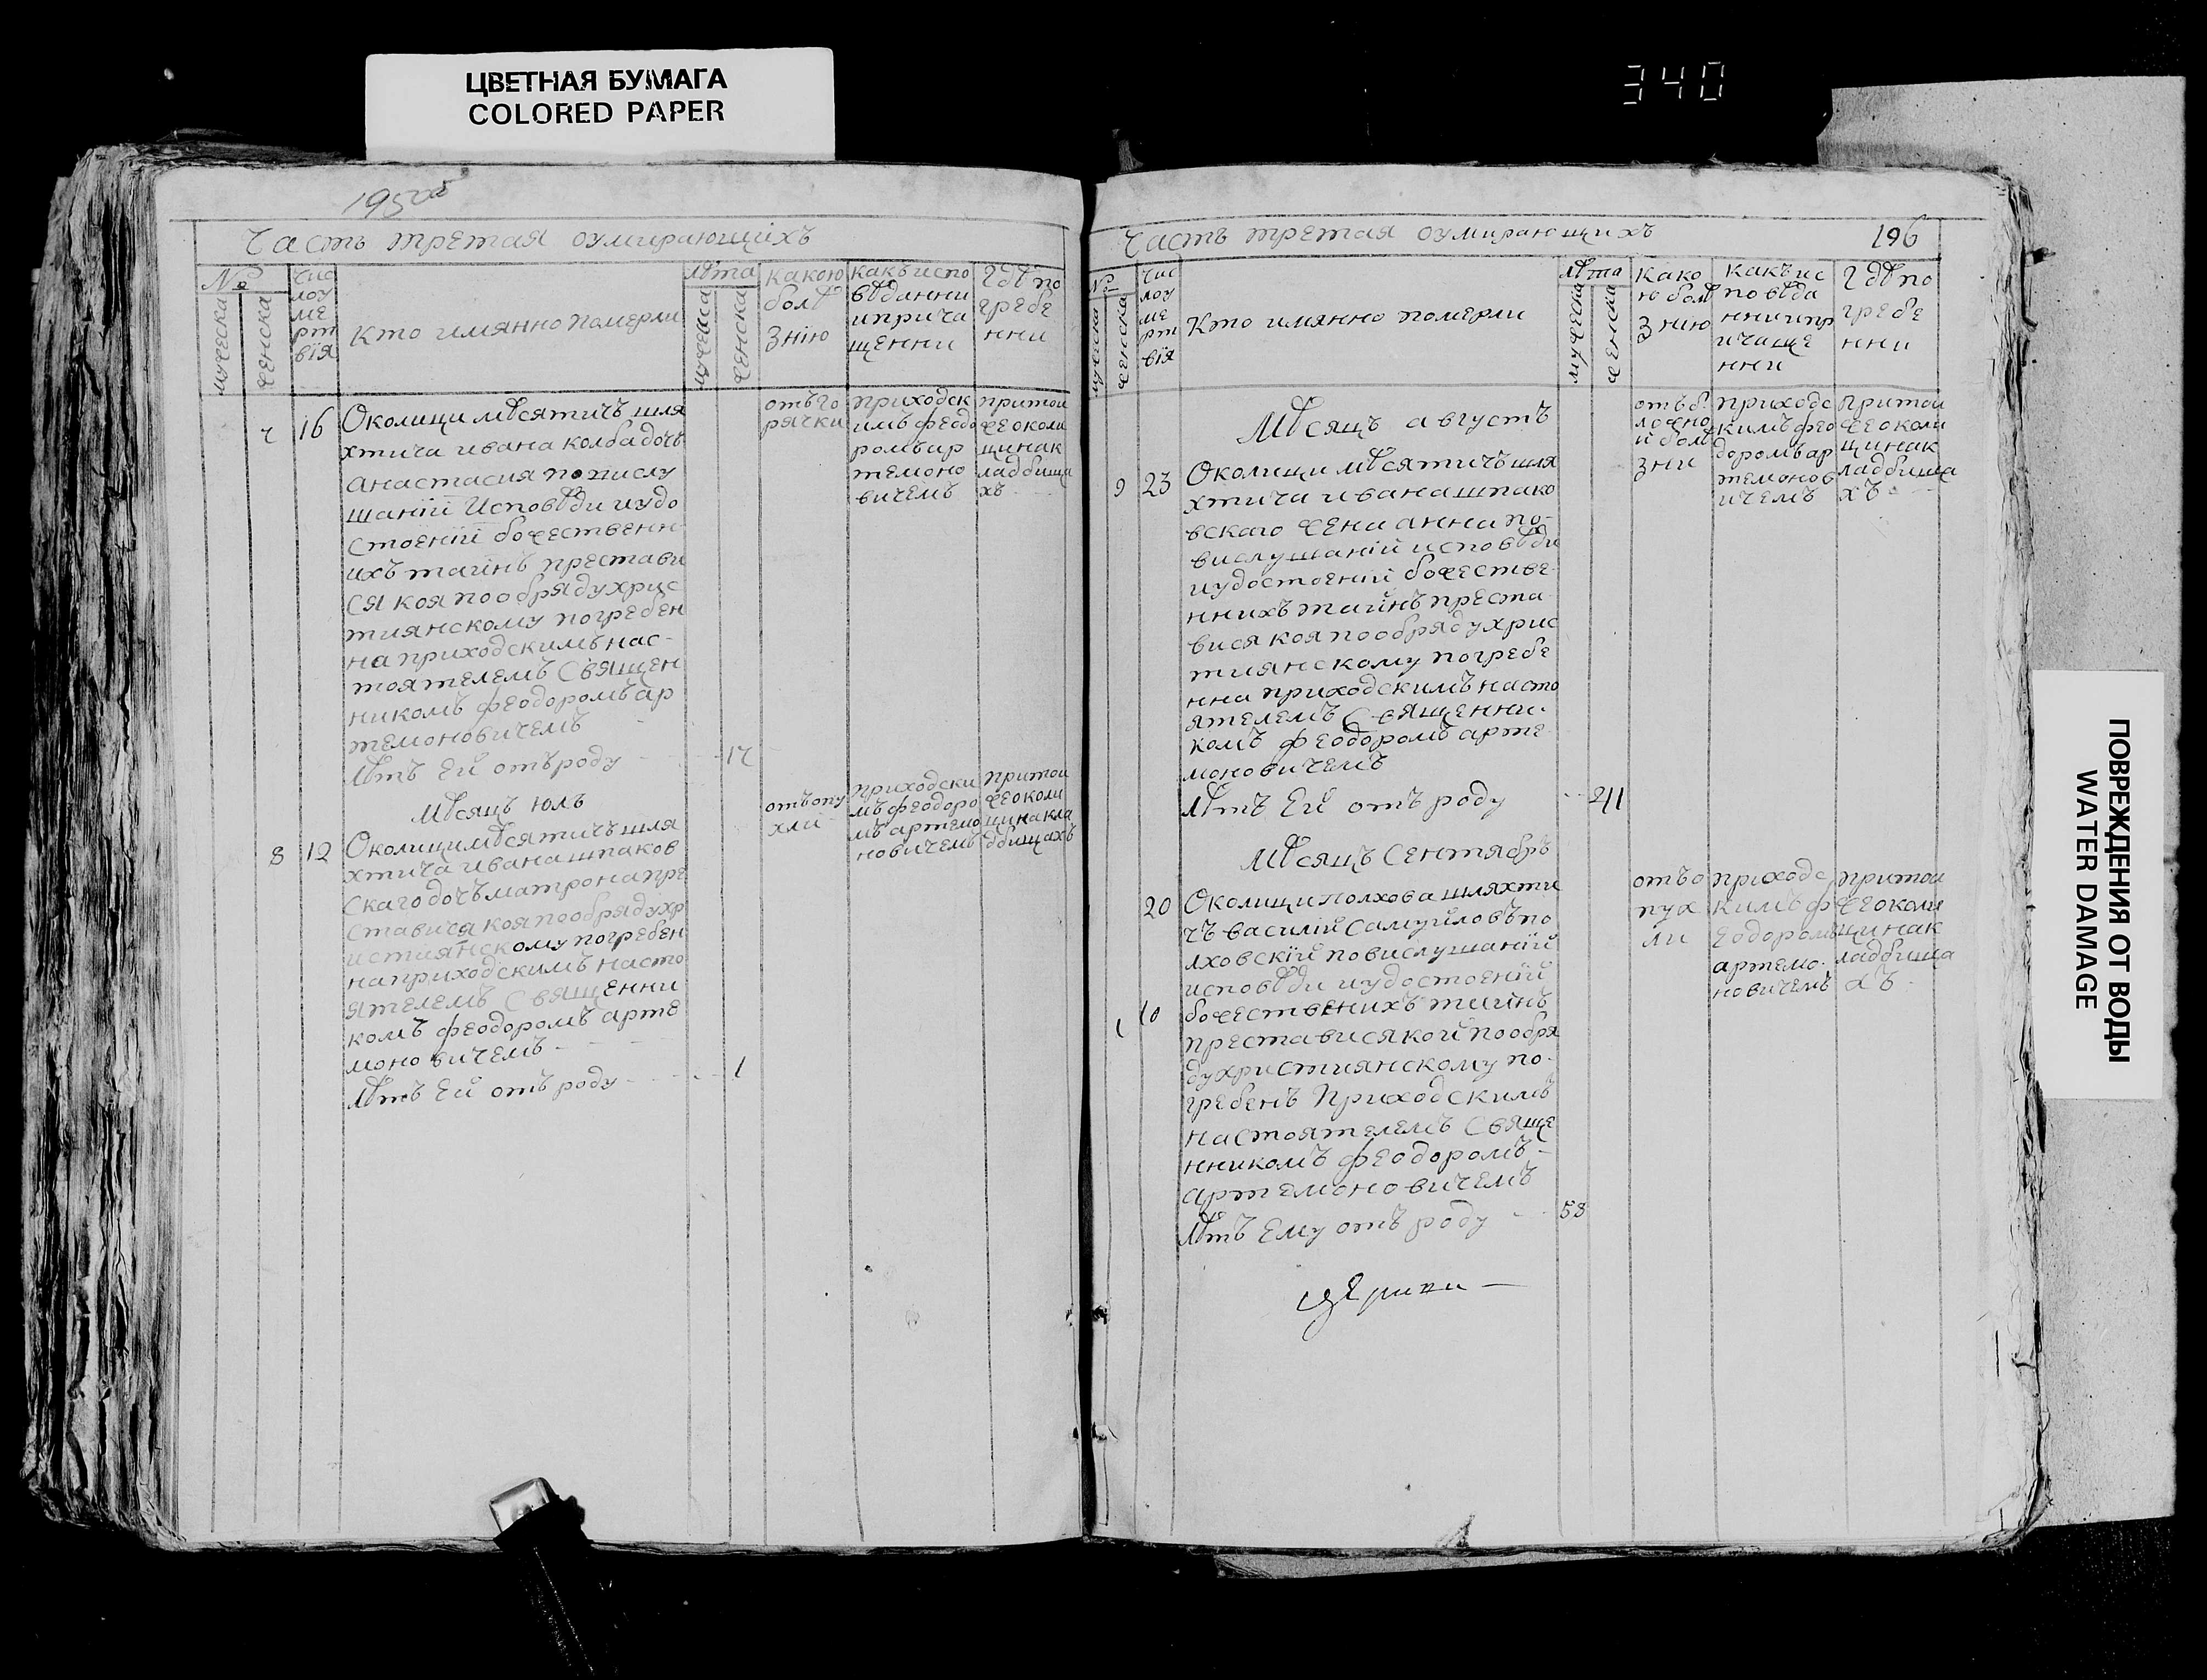 ЦВЕТНАЯ БУМАГА
COLORED PAPER
340
195
Часть третая оумирающихъ
№
мужеска
женска
Чис
лоу
ме
рт
вїя
Кто имянно померли
лѣта
мужеска
женска
какою
болѣ
знію
какъ испо
вѣданни
и прича
щенни
Гдѣ по
гребе
нни
7
16
Околици мѣсятичъ шля
хтича ивана колбадочъ
анастасия по
шаніи Исповѣди и удо
стоеніи божественн
ихъ таинъ престави
ся коя по обряду хрис
тиянскому погребен
на приходскимъ нас-
тоятелемъ Священ
никомъ феодоромъ ар
темоновичемъ
Лѣтъ Ей отъ роду
17
отъ го
рячки
приходск
имъ феодо
ромъ ар
темоно
вичемъ
при той
же околи
ци на к
ладбища
хъ
Мѣсяцъ юль
8
12
Околици мѣсятичъ шля
хтича ивана шпаков
скаго дочъ матрона пре
ставися коя по обряду хр
истиянскому погребен
на приходскимъ насто
ятелемъ Священни
комъ феодоромъ арте
моновичемъ
Лѣтъ Ей отъ роду
1
отъ опу
хли
приходски
мъ феодоро
мъ артемо
новичемъ
при той
же околи
ци на кла
дбищахъ
Часть третая оумирающихъ
196
№
мужеска
женска
Чис
лоу
ме
рт
вїя
Кто имянно померли
лѣта
мужеска
женска
Како
ю болѣ
знію
Какъ ис
повѣда
нни и пр
ичаще
нни
Гдѣ по
гребе
нни
Мѣсяцъ августъ
9
23
Околици мѣсятичъ шля
хтича ивана шпако
вскаго жена анна по-
вислушаніи исповѣди
и удостоеніи божестве-
ннихъ таинъ преста
вися коя по обряду хрис
тиянскому погребе
нна приходскимъ насто
ятелемъ Священни-
комъ феодоромъ арте
моновичемъ
Лѣтъ Ей отъ роду
отъ б
ложно
й болѣ
зни
приходс
кимъ фео
доромъ ар
темонов
ичемъ
При той
же околи
ци на к
ладбища
хъ
Мѣсяцъ Сентябръ
20
Околици полхова шляхти
чъ василій Самуйловъ по
лховскій по вислушаніи
исповѣди и удостоеніи
божественихъ таинъ
преставися кой по обря
ду християнскому по-
гребенъ Приходскимъ
настоятелемъ Свяще
нникомъ феодоромъ-
артемоновичемъ
Лѣтъ Ему отъ роду
58
1
10
отъ о
пух
ли
приходс
кимъ ф
еодоромъ
артемо-
новичемъ
при той
же околи
ци на к
ладбища
хъ
ПОВРЕЖДЕНИЯ ОТ ВОДЫ
WATER DAMAGE